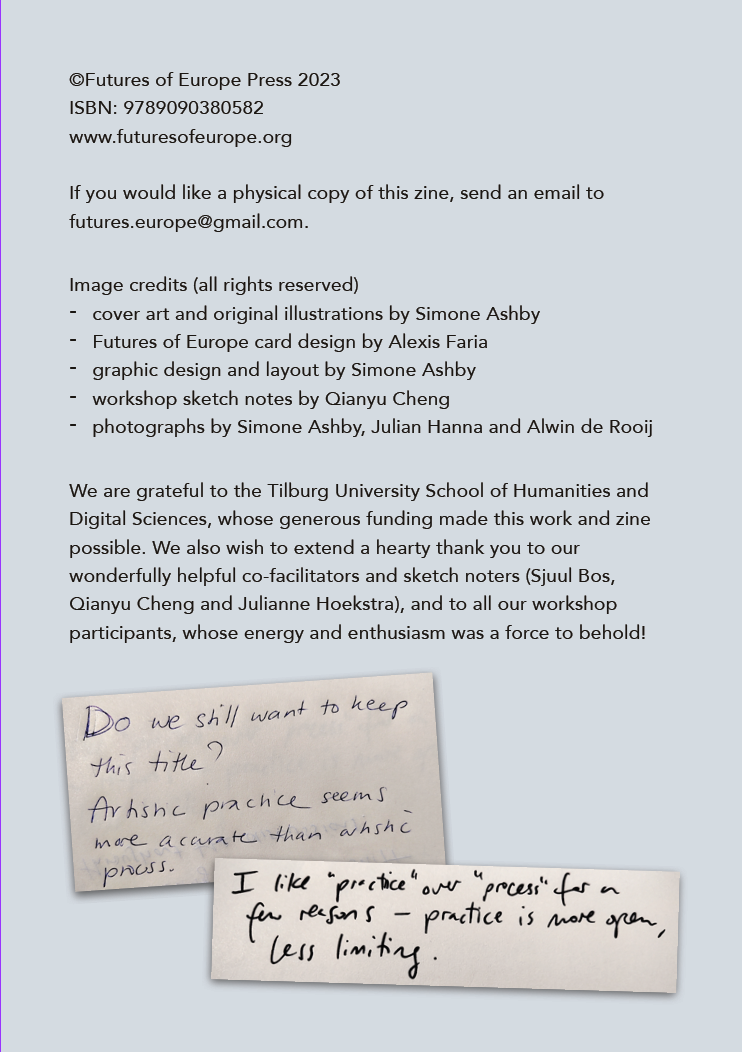 ©Futures of Europe Press 2023
ISBN: 9789090380582
www.futuresofeurope.org
If you would like a physical copy of this zine, send an email to
futures.europe@gmail.com.
Image credits (all rights reserved)
- cover art and original illustrations by Simone Ashby
- Futures of Europe card design by Alexis Faria
- graphic design and layout by Simone Ashby
- workshop sketch notes by Qianyu Cheng
- photographs by Simone Ashby, Julian Hanna and Alwin de Rooij
We are grateful to the Tilburg University School of Humanities and
Digital Sciences, whose generous funding made this work and zine
possible. We also wish to extend a hearty thank you to our
wonderfully helpful co-facilitators and sketch noters (Sjuul Bos,
Qianyu Cheng and Julianne Hoekstra), and to all our workshop
participants, whose energy and enthusiasm was a force to behold!
Do we still want to keep
this title?
Artistic practice seems
more acurate than artistic
process.
I like "practice" over "process" for a
few reasons – practice is more open,
less limiting.